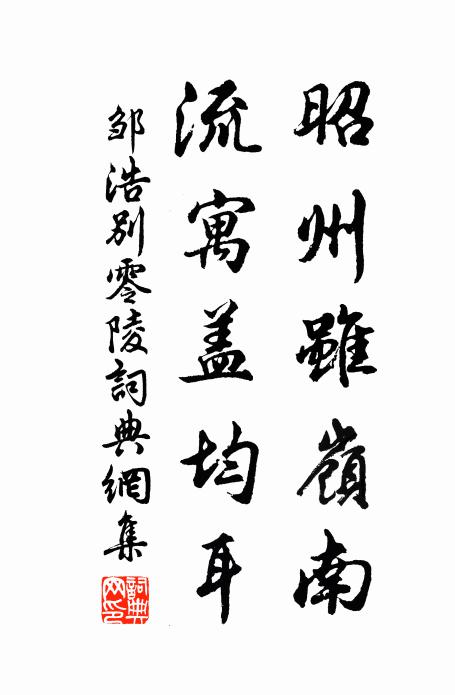 昭州雖嶺南
流寓盖均耳
邹浩别零陵詞典網集
詞典网印